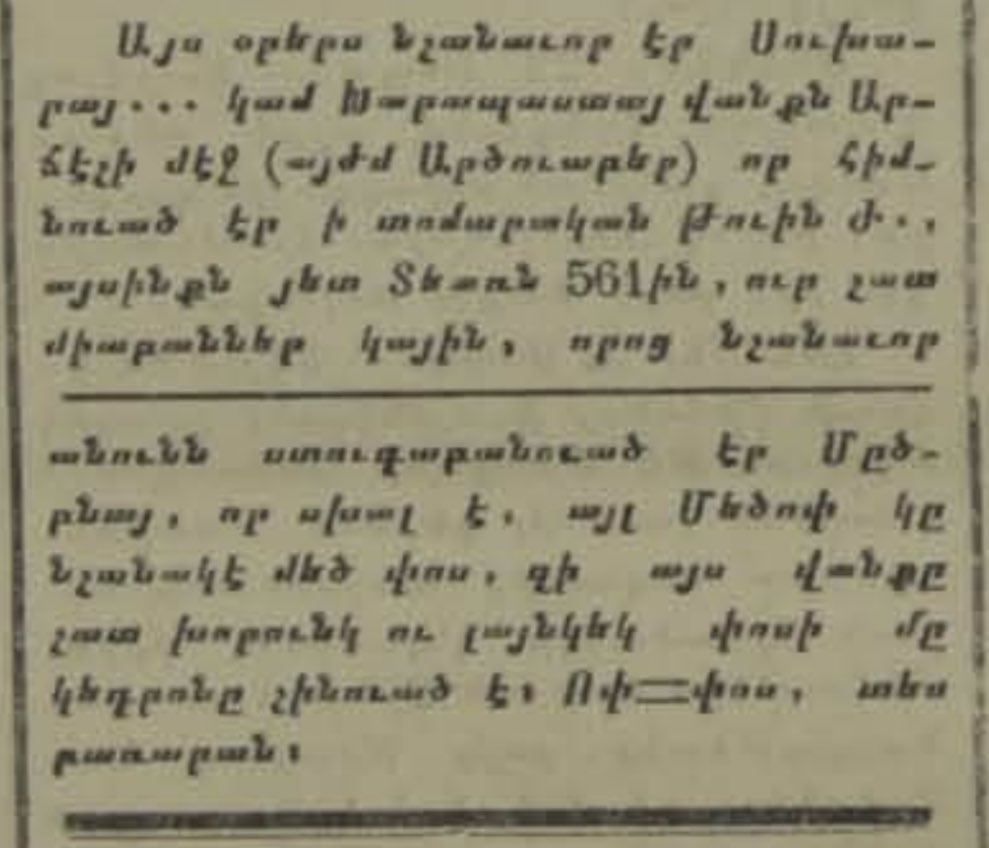 Այս օրերս նշանաւոր էր Սուխա-
րայ... կամ Խարապաստայ վանքն Ար-
ճէշի մէջ (այժմ Արծուաբեր) որ հիմ-
նուած էր ի տոմարական թուին Ժ.,
այսինքն յետ Տեառն 561ին, ուր շատ
միաբաններ կային, որոց նշանաւոր
անունն ստուգաբանուած էր Մըծ-
բնայ, որ սխալ է. այլ Մեծոփ կը
նշանակէ մեծ փոս, զի այս վանքը
շատ խորունկ ու լայնկեկ փոսի մը
կեդրոնը շինուած է։ Ոփ=փոս, տես
բառարան։